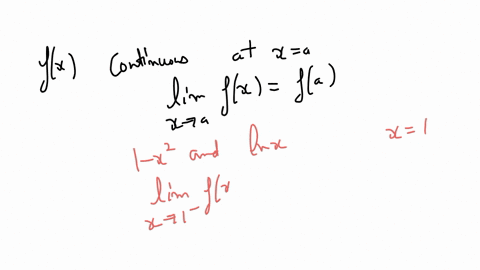 f(x) Continuous at x=a
lim f(x) = f(a)
x→a
1-x² and ln x x=1
lim f(x
x→1⁻